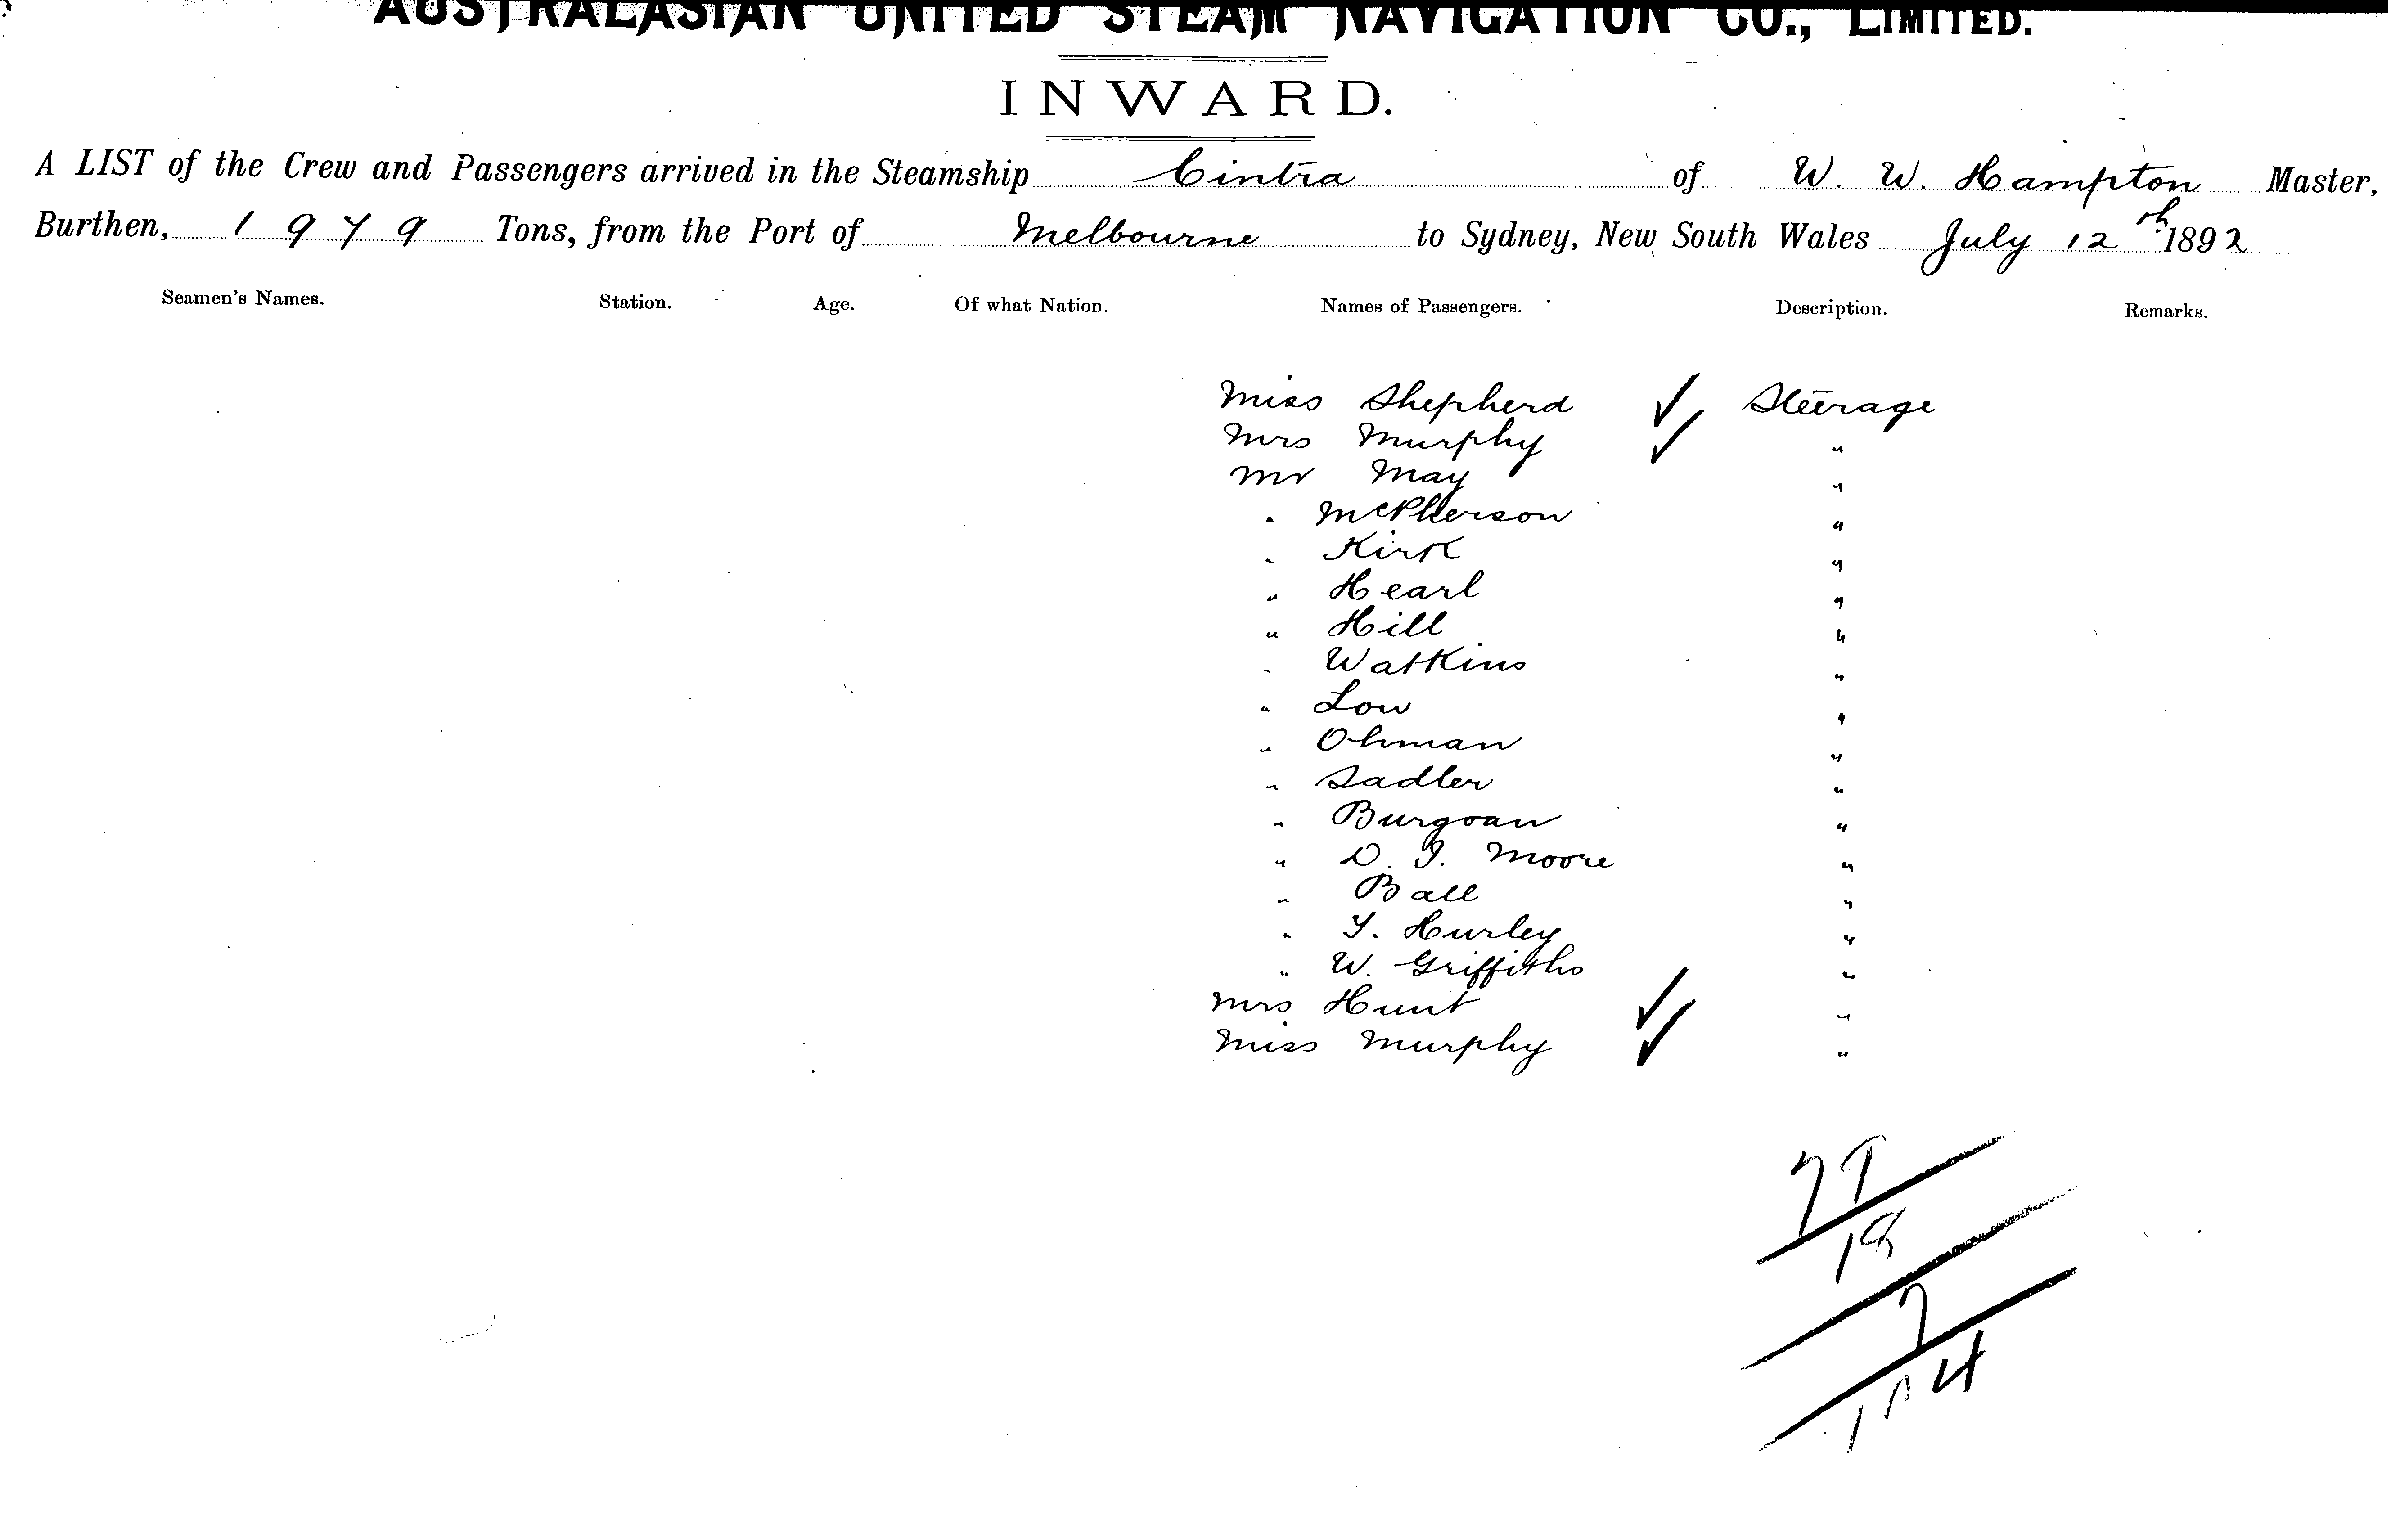 AUSTRALASIAN UNITED STEAM NAVIGATION CO., LIMITED.
INWARD.
A LIST of the Crew and Passengers arrived in the Steamship Cintra of W. W. Hampton Master,
Burthen, 1979 Tons, from the Port of Melbourne to Sydney, New South Wales July 12th 1892
Seamen's Names. Station. Age. Of what Nation. Names of Passengers. Description. Remarks.
Miss Shepherd ✓ Steerage
Mrs Murphy ✓ "
Mr May "
" McPherson "
" Kirk "
" Hearl "
" Hill "
" Watkins "
" Low "
" Ohman "
" Sadler "
" Burgoan "
" D. J. Moore "
" Ball "
" Y. Hurley "
" W. Griffiths "
Mrs Hunt ✓ "
Miss Murphy ✓ "
79
18
7
104